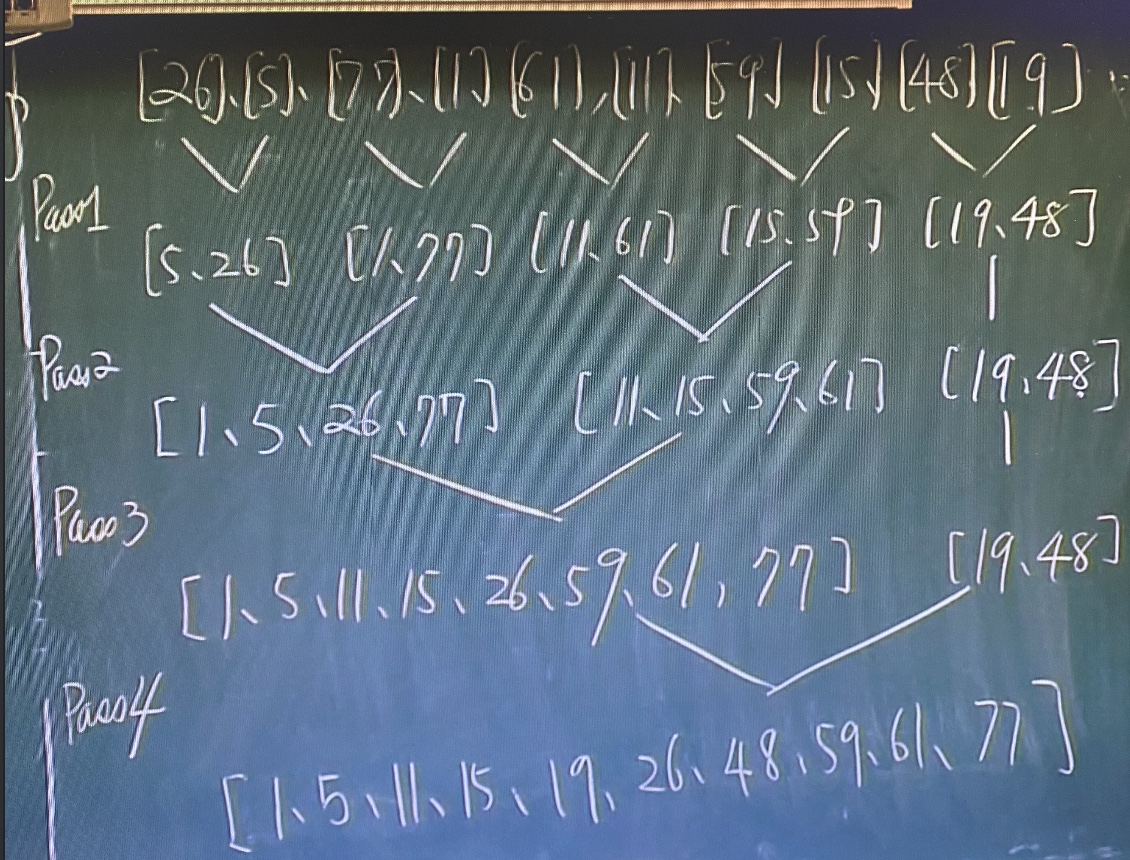 [26]、[5]、[77]、[1] [61], [11]、[59] [15] [48] [19]
Pass1
[5、26] [1、77] [11、61] [15、59] [19、48]
Pass2
[1、5、26、77] [11、15、59、61] [19、48]
Pass3
[1、5、11、15、26、59、61, 77] [19、48]
Pass4
[1、5、11、15、19、26、48、59、61、77]